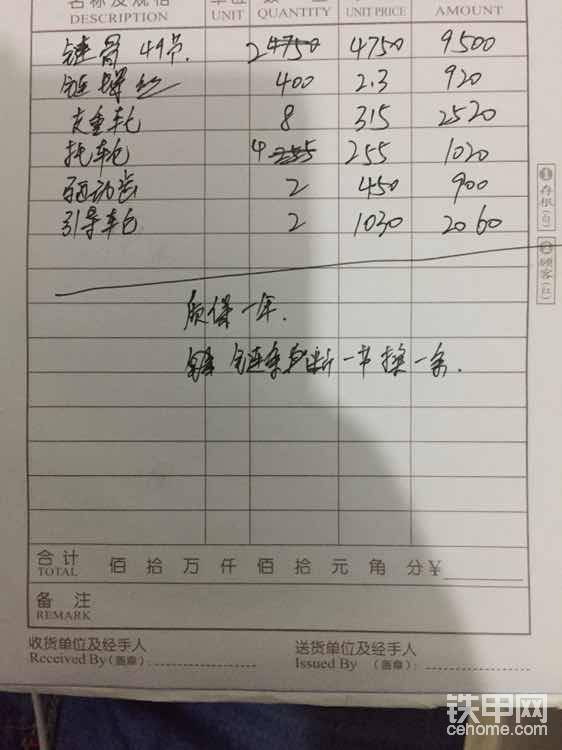 名称及规格 单位 数量
DESCRIPTION UNIT QUANTITY UNIT PRICE AMOUNT
链骨 49节. 2 4750 4750 9500
链螺丝 400 2.3 920
支重轮 8 315 2520
托轮 4 255 255 1020
驱动齿 2 450 900
引导轮 2 1030 2060
质保一年.
链条断一节换一条.
合计 佰拾万仟佰拾元角分¥
TOTAL
备注
REMARK
收货单位及经手人 送货单位及经手人
Received By (盖章): Issued By (盖章):
①存根(白) ②顾客(红)
铁甲网
cehome.com